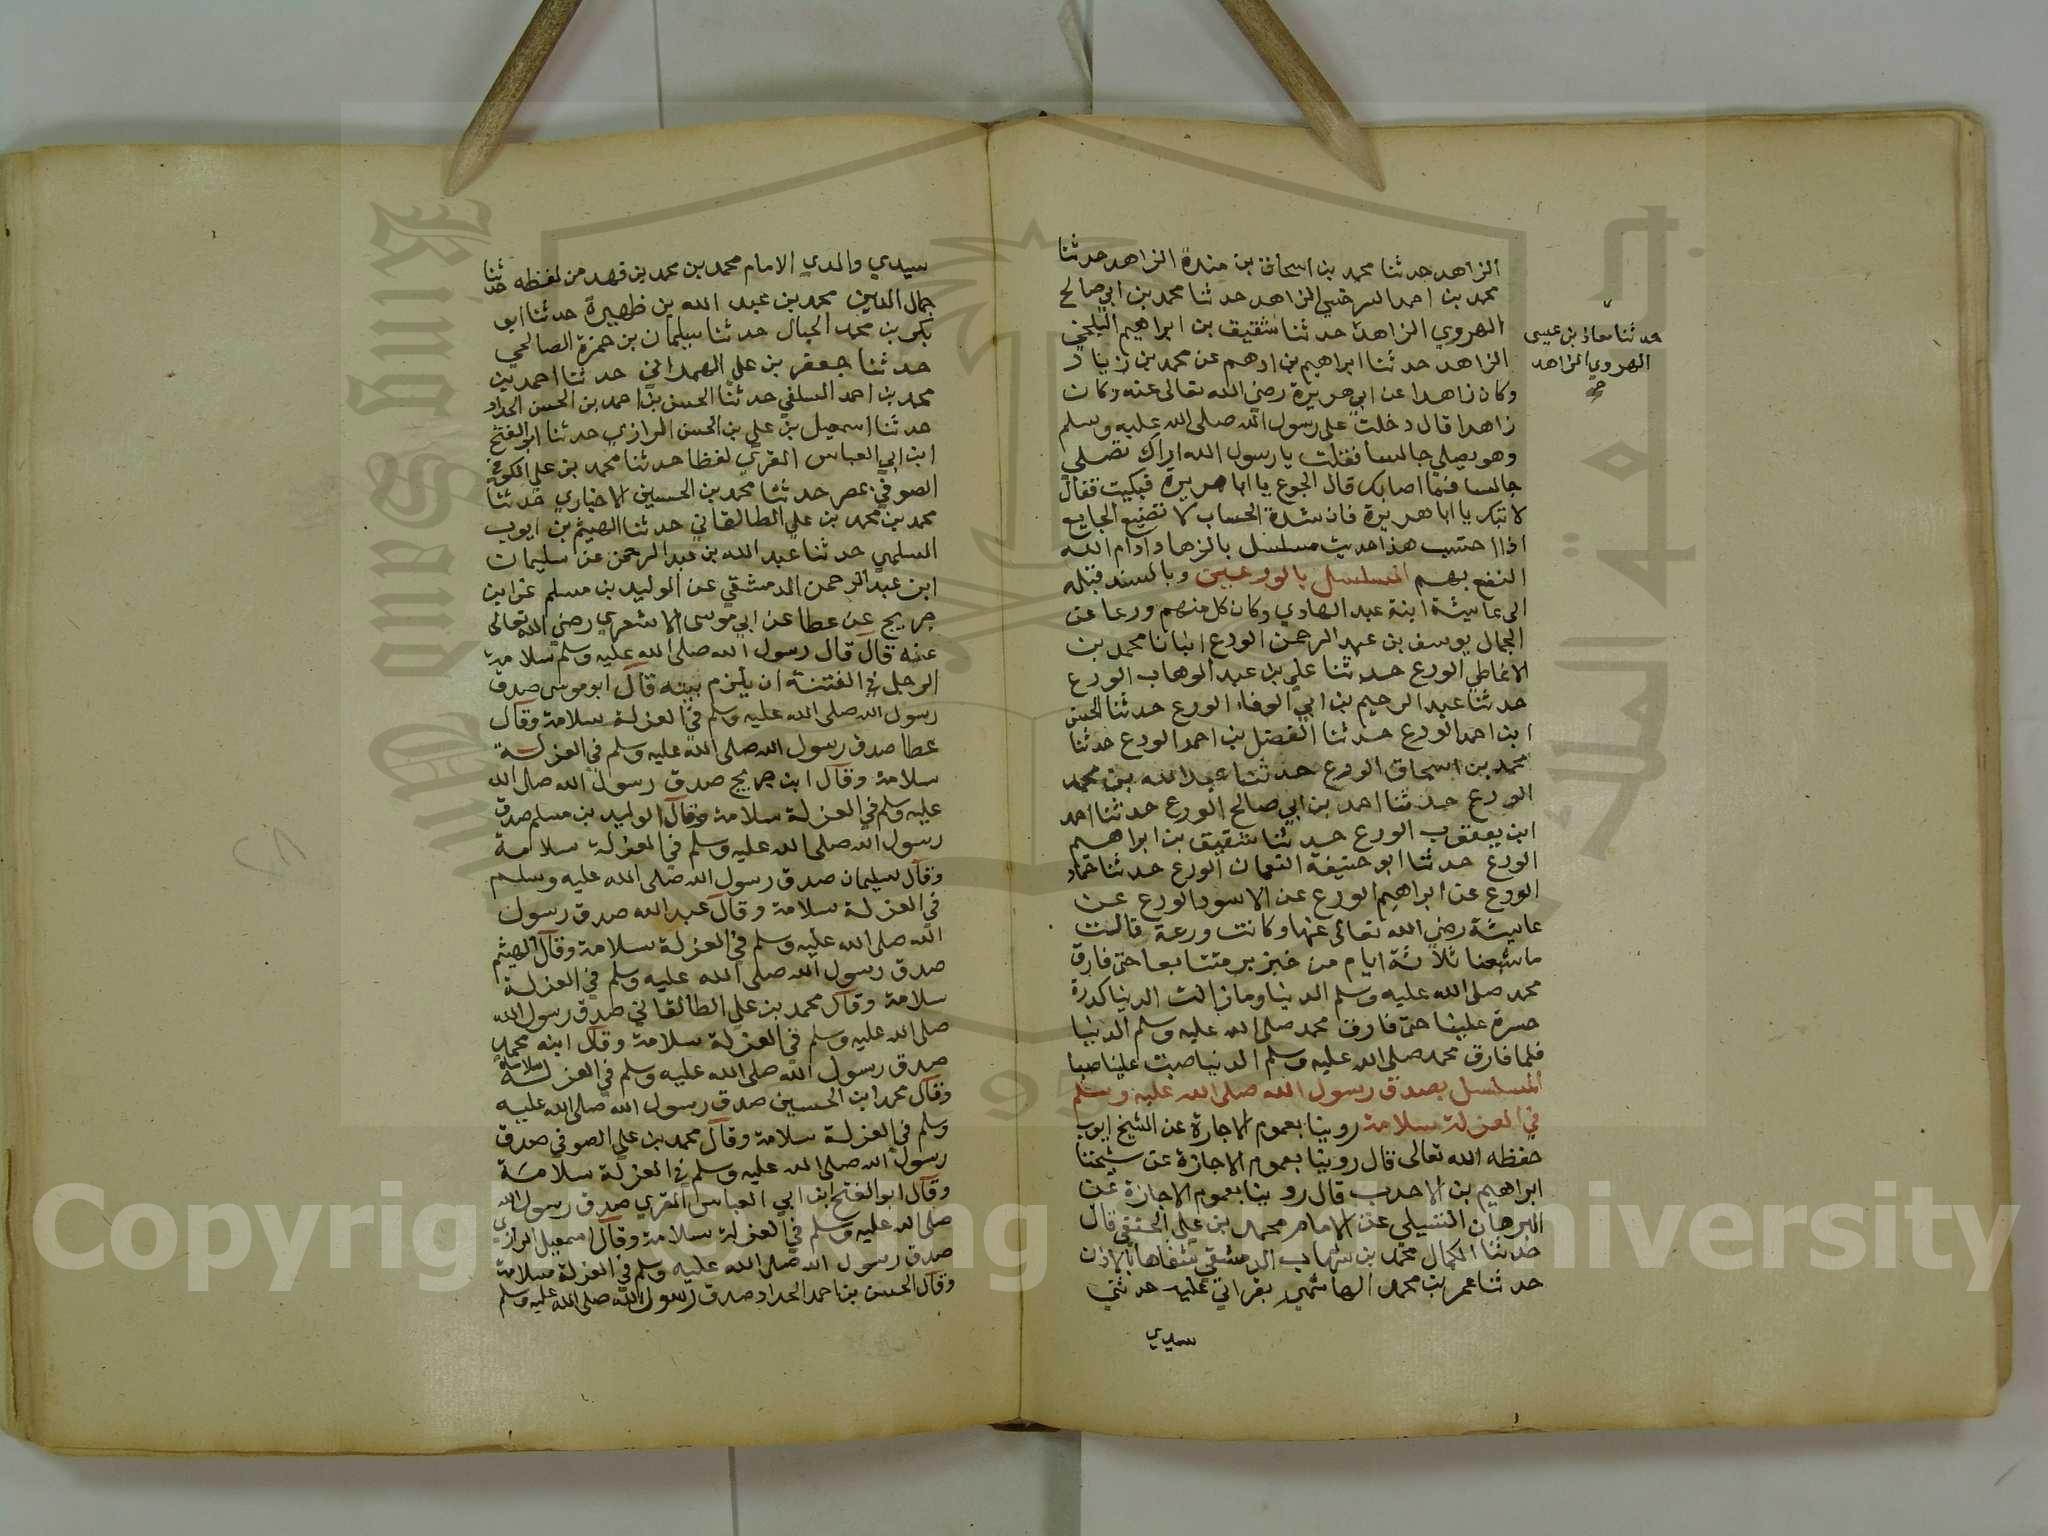 الزاهد حدثنا محمد بن اسحاق بن مندة الزاهد حدثنا
محمد بن احمد السرخسي الزاهد حدثنا محمد بن ابي صالح
الهروي الزاهد حدثنا شقيق بن ابراهيم البلخي
حدثنا معاذ بن عيسى
الهروي الزاهد
صح
الزاهد حدثنا ابراهيم بن ادهم عن محمد بن زياد
وكان زاهدا عن ابي هريرة رضي الله تعالى عنه وكان
زاهدا قال دخلت على رسول الله صلى الله عليه وسلم
وهو يصلي جالسا فقلت يا رسول الله اراك تصلي
جالسا فما اصابك قال الجوع يا ابا هريرة فبكيت فقال
لا تبك يا ابا هريرة فان شدة الحساب لا تصيب الجايع
اذا احتسب هذا حديث مسلسل بالزهاد ادام الله
النفع بهم المسلسل بالورعين وبالسند قبله
الى عايشة ابنة عبد الهادي وكان كل منهم ورعا عن
الجمال يوسف بن عبد الرحمن الورع انبانا محمد بن
الانماطي الورع حدثنا علي بن عبد الوهاب الورع
حدثنا عبد الرحيم بن ابي الوفاء الورع حدثنا الحسن
ابن احمد الورع حدثنا الفضل بن احمد الورع حدثنا
محمد بن اسحاق الورع حدثنا عبد الله بن محمد
الورع حدثنا احمد بن ابي صالح الورع حدثنا احمد
ابن يعقوب الورع حدثنا شقيق بن ابراهيم
الورع حدثنا ابو حنيفة النعمان الورع حدثنا حماد
الورع عن ابراهيم الورع عن الاسود الورع عن
عايشة رضي الله تعالى عنها وكانت ورعة قالت
ما شبعنا ثلاثة ايام من خبز بر متتابعا حتى فارق
محمد صلى الله عليه وسلم الدنيا وما زالت الدنيا كدرة
حسرة علينا حتى فارق محمد صلى الله عليه وسلم الدنيا
فلما فارق محمد صلى الله عليه وسلم الدنيا صبت علينا صبا
المسلسل بصدق رسول الله صلى الله عليه وسلم
في العزلة سلامة روينا بعموم الاجازة عن الشيخ ايوب
حفظه الله تعالى قال روينا بعموم الاجازة عن شيخنا
ابراهيم بن الاحدب قال روينا بعموم الاجازة عن
البرهان الشيلي عن الامام محمد بن علي الحنفي قال
حدثنا الكمال محمد بن شهاب الدمشقي شفاها بالاذن
حدثنا عمر بن محمد الهاشمي بقراتي عليه حدثني
سيدي
سيدي والدي الامام محمد بن محمد بن فهد من لفظه حدثنا
جمال الدين محمد بن عبد الله بن ظهيرة حدثنا ابو
بكر بن محمد الجبال حدثنا سليمان بن حمزة الصالحي
حدثنا جعفر بن علي الهمداني حدثنا احمد بن
محمد بن احمد السلفي حدثنا الحسن بن احمد بن الحسن الحداد
حدثنا اسمعيل بن علي بن الحسن الرازي حدثنا ابو الفتح
ابن ابي العباس المقري لفظا حدثنا محمد بن علي الكوفي
الصوفي بمصر حدثنا محمد بن الحسين الاخباري حدثنا
محمد بن محمد بن علي الطالقاني حدثنا الهيثم بن ايوب
السلمي حدثنا عبد الله بن عبد الرحمن عن سليمان
ابن عبد الرحمن الدمشقي عن الوليد بن مسلم عن ابن
جريج عن عطا عن ابي موسى الاشعري رضي الله تعالى
عنه قال قال رسول الله صلى الله عليه وسلم سلامة
الرجل في الفتنة ان يلزم بيته قال ابو موسى صدق
رسول الله صلى الله عليه وسلم في العزلة سلامة وقال
عطا صدق رسول الله صلى الله عليه وسلم في العزلة
سلامة وقال ابن جريج صدق رسول الله صلى الله
عليه وسلم في العزلة سلامة وقال الوليد بن مسلم صدق
رسول الله صلى الله عليه وسلم في العزلة سلامة
وقال سليمان صدق رسول الله صلى الله عليه وسلم
في العزلة سلامة وقال عبد الله صدق رسول
الله صلى الله عليه وسلم في العزلة سلامة وقال الهيثم
صدق رسول الله صلى الله عليه وسلم في العزلة
سلامة وقال محمد بن علي الطالقاني صدق رسول الله
صلى الله عليه وسلم في العزلة سلامة وقال ابنه محمد
صدق رسول الله صلى الله عليه وسلم في العزلة سلامة
وقال محمد ابن الحسين صدق رسول الله صلى الله عليه
وسلم في العزلة سلامة وقال محمد بن علي الصوفي صدق
رسول الله صلى الله عليه وسلم في العزلة سلامة
وقال ابو الفتح ابن ابي العباس المقري صدق رسول الله
صلى الله عليه وسلم في العزلة سلامة وقال اسمعيل الرازي
صدق رسول الله صلى الله عليه وسلم في العزلة سلامة
وقال الحسن بن احمد الحداد صدق رسول الله صلى الله عليه وسلم
Copyright © King Saud University